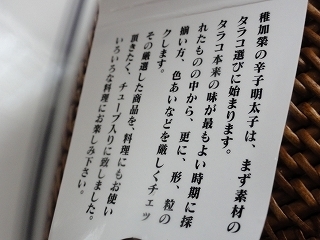 稚加榮の辛子明太子は、まず素材の
タラコ選びに始まります。
タラコ本来の味が最もよい時期に採
れたものの中から、更に、形、粒の
揃い方、色あいなどを厳しくチェッ
クします。
その厳選した商品を、料理にもお使い
頂きたく、チューブ入りに致しました。
いろいろな料理にお楽しみ下さい。